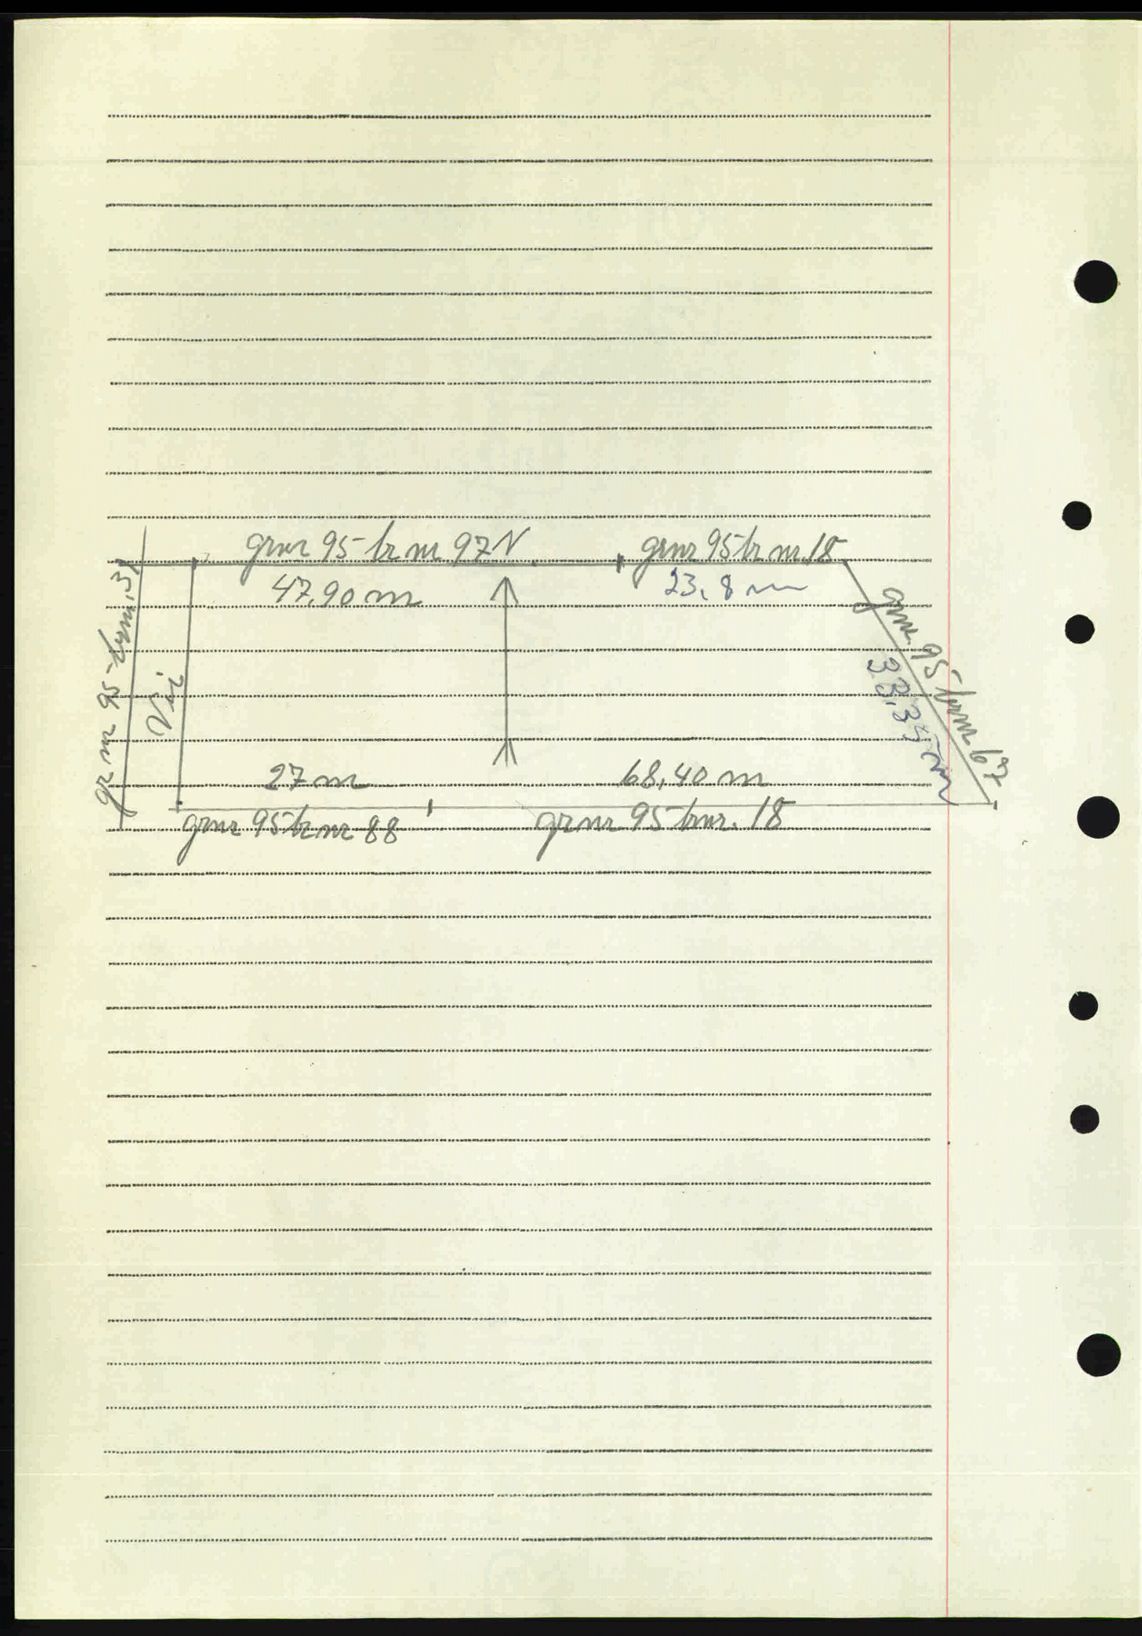 grnr 95 br nr 97 N
grnr 95 br nr. 18
47,90 m
23,8 m
gr nr 95 brnr. 3
Vei
grnr 95 brnr 67
33,35 m
27 m
68,40 m
grnr 95 br nr 88
grnr 95 brnr. 18